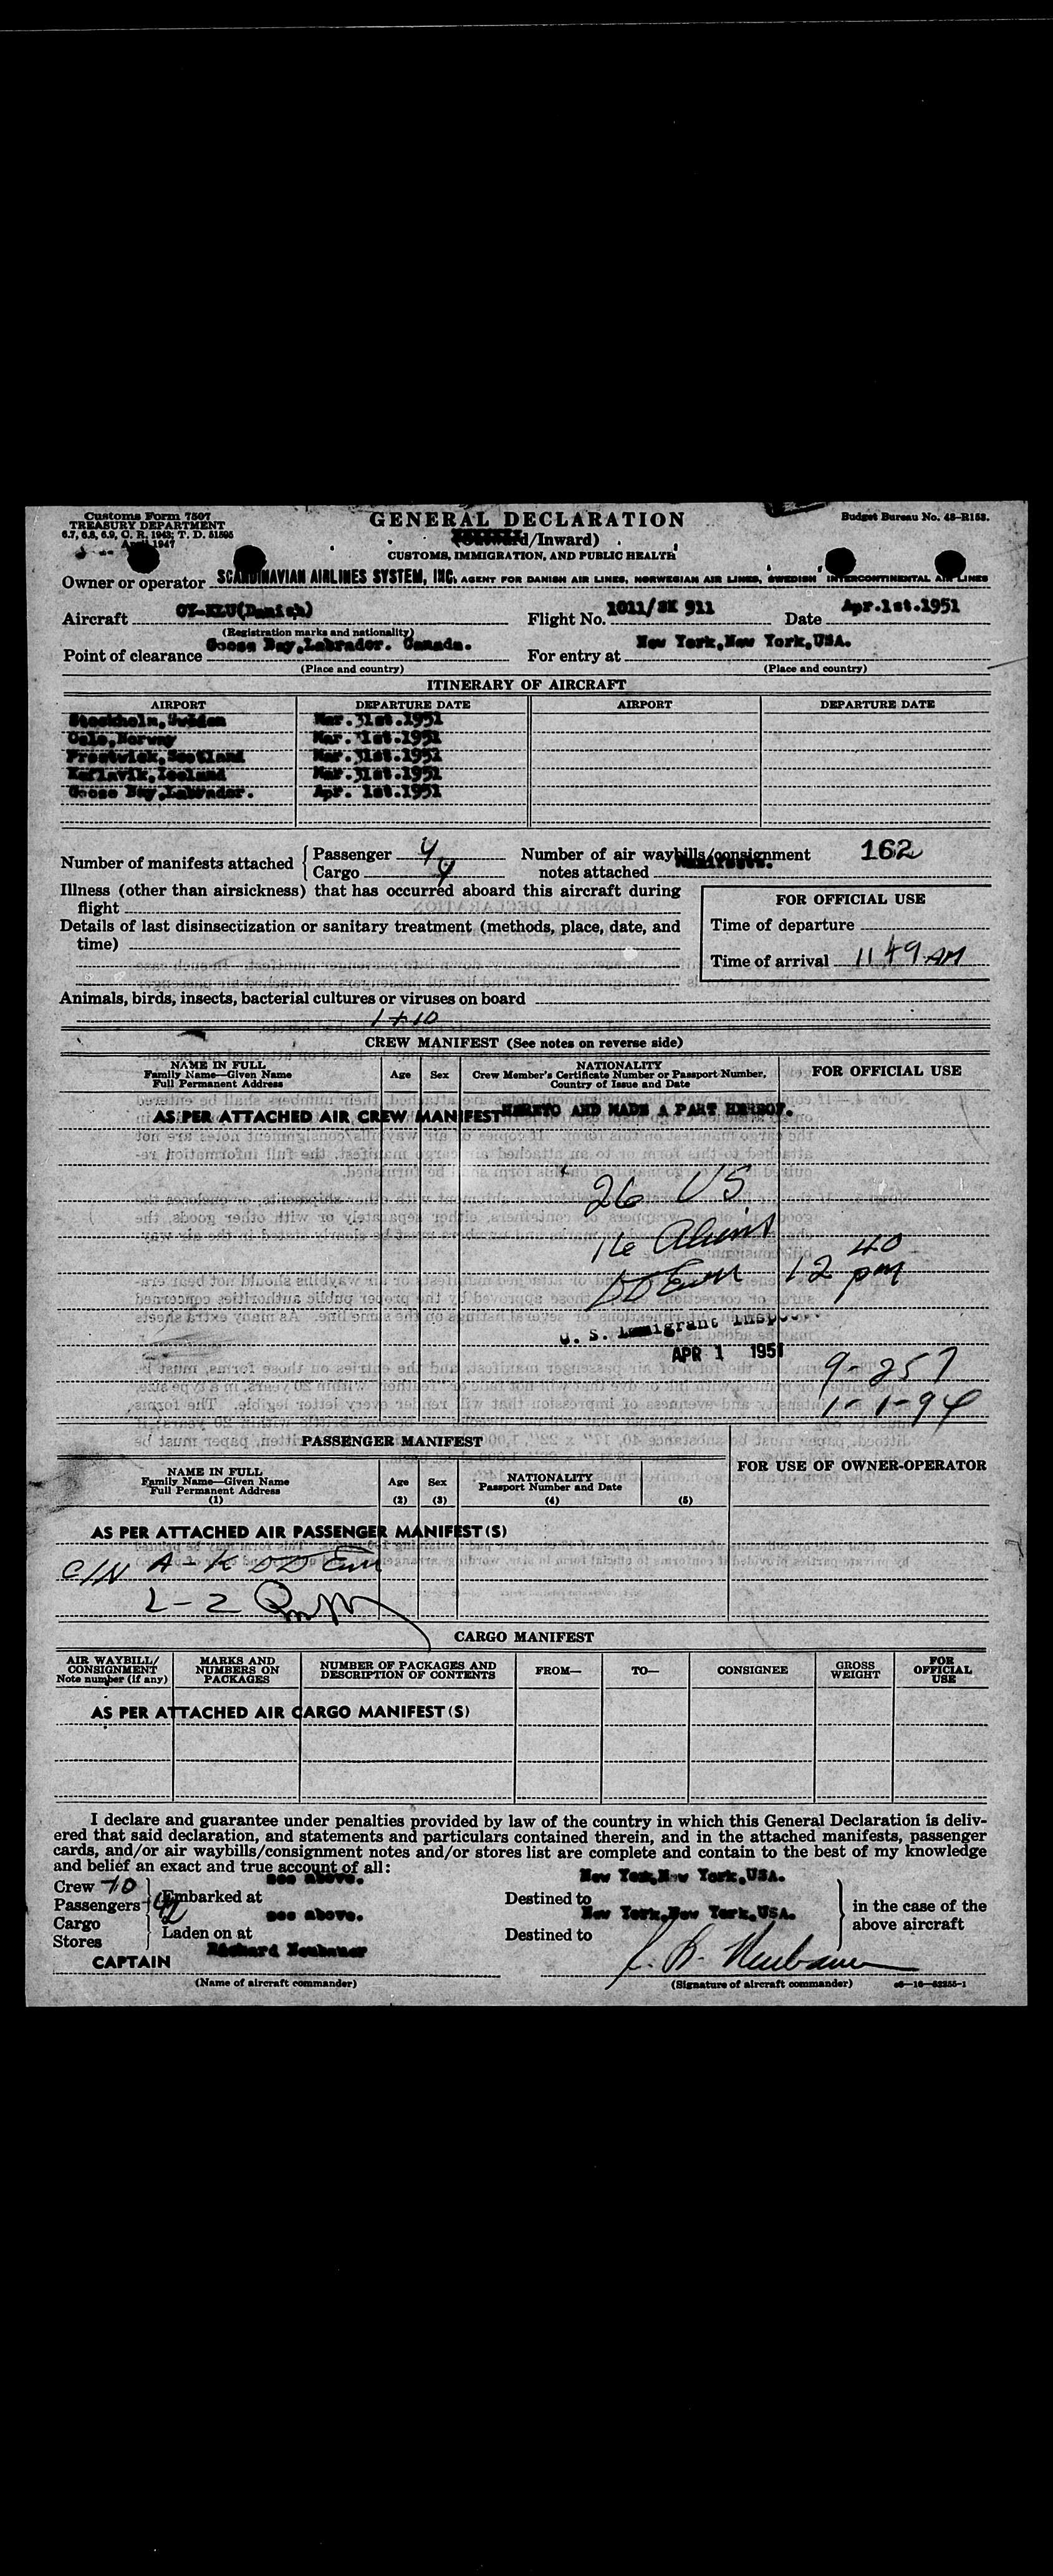 Customs Form 7507
TREASURY DEPARTMENT
6.7, 6.8, 6.9, C. R. 1943; T. D. 51595
April 1947
GENERAL DECLARATION
(Outward/Inward)
CUSTOMS, IMMIGRATION, AND PUBLIC HEALTH
Budget Bureau No. 48-R153.
Owner or operator SCANDINAVIAN AIRLINES SYSTEM, INC. AGENT FOR DANISH AIR LINES, NORWEGIAN AIR LINES, SWEDISH INTERCONTINENTAL AIR LINES
Aircraft OY-KLU(Danish) Flight No. 1011/SK 911 Date Apr.1st.1951
(Registration marks and nationality)
Point of clearance Goose Bay,Labrador. Canada. For entry at New York,New York,USA.
(Place and country) (Place and country)
ITINERARY OF AIRCRAFT
AIRPORT DEPARTURE DATE AIRPORT DEPARTURE DATE
Stockholm,Sweden Mar.31st.1951
Oslo,Norway Mar. 1st.1951
Prestwick,Scotland Mar.31st.1951
Keflavik,Iceland Mar.31st.1951
Goose Bay,Labrador. Apr. 1st.1951
Number of manifests attached { Passenger 4
Cargo 4
Number of air waybills/consignment 162
notes attached
Illness (other than airsickness) that has occurred aboard this aircraft during
flight
Details of last disinsectization or sanitary treatment (methods, place, date, and
time)
FOR OFFICIAL USE
Time of departure
Time of arrival 11 49 AM
Animals, birds, insects, bacterial cultures or viruses on board
1+10
CREW MANIFEST (See notes on reverse side)
NAME IN FULL
Family Name—Given Name
Full Permanent Address
Age Sex
NATIONALITY
Crew Member's Certificate Number or Passport Number,
Country of Issue and Date
FOR OFFICIAL USE
AS PER ATTACHED AIR CREW MANIFEST HERETO AND MADE A PART HEREOF.
26 US
16 Aliens
12 40 pm
U. S. Immigrant Inspector
APR 1 1951
9-257
1-1-94
PASSENGER MANIFEST
NAME IN FULL
Family Name—Given Name
Full Permanent Address
(1)
Age
(2)
Sex
(3)
NATIONALITY
Passport Number and Date
(4) (5)
FOR USE OF OWNER-OPERATOR
AS PER ATTACHED AIR PASSENGER MANIFEST(S)
C/N A-K
L-Z
CARGO MANIFEST
AIR WAYBILL/
CONSIGNMENT
Note number (if any)
MARKS AND
NUMBERS ON
PACKAGES
NUMBER OF PACKAGES AND
DESCRIPTION OF CONTENTS
FROM— TO— CONSIGNEE
GROSS
WEIGHT
FOR
OFFICIAL
USE
AS PER ATTACHED AIR CARGO MANIFEST(S)
I declare and guarantee under penalties provided by law of the country in which this General Declaration is deliv-
ered that said declaration, and statements and particulars contained therein, and in the attached manifests, passenger
cards, and/or air waybills/consignment notes and/or stores list are complete and contain to the best of my knowledge
and belief an exact and true account of all:
Crew 10
Passengers 42
Cargo
Stores
see above.
Embarked at
see above.
Laden on at
New York,New York,USA.
Destined to
New York,New York,USA.
Destined to
in the case of the
above aircraft
CAPTAIN Richard Neubauer
(Name of aircraft commander)
R. B. Neubauer
(Signature of aircraft commander)
16—53255-1